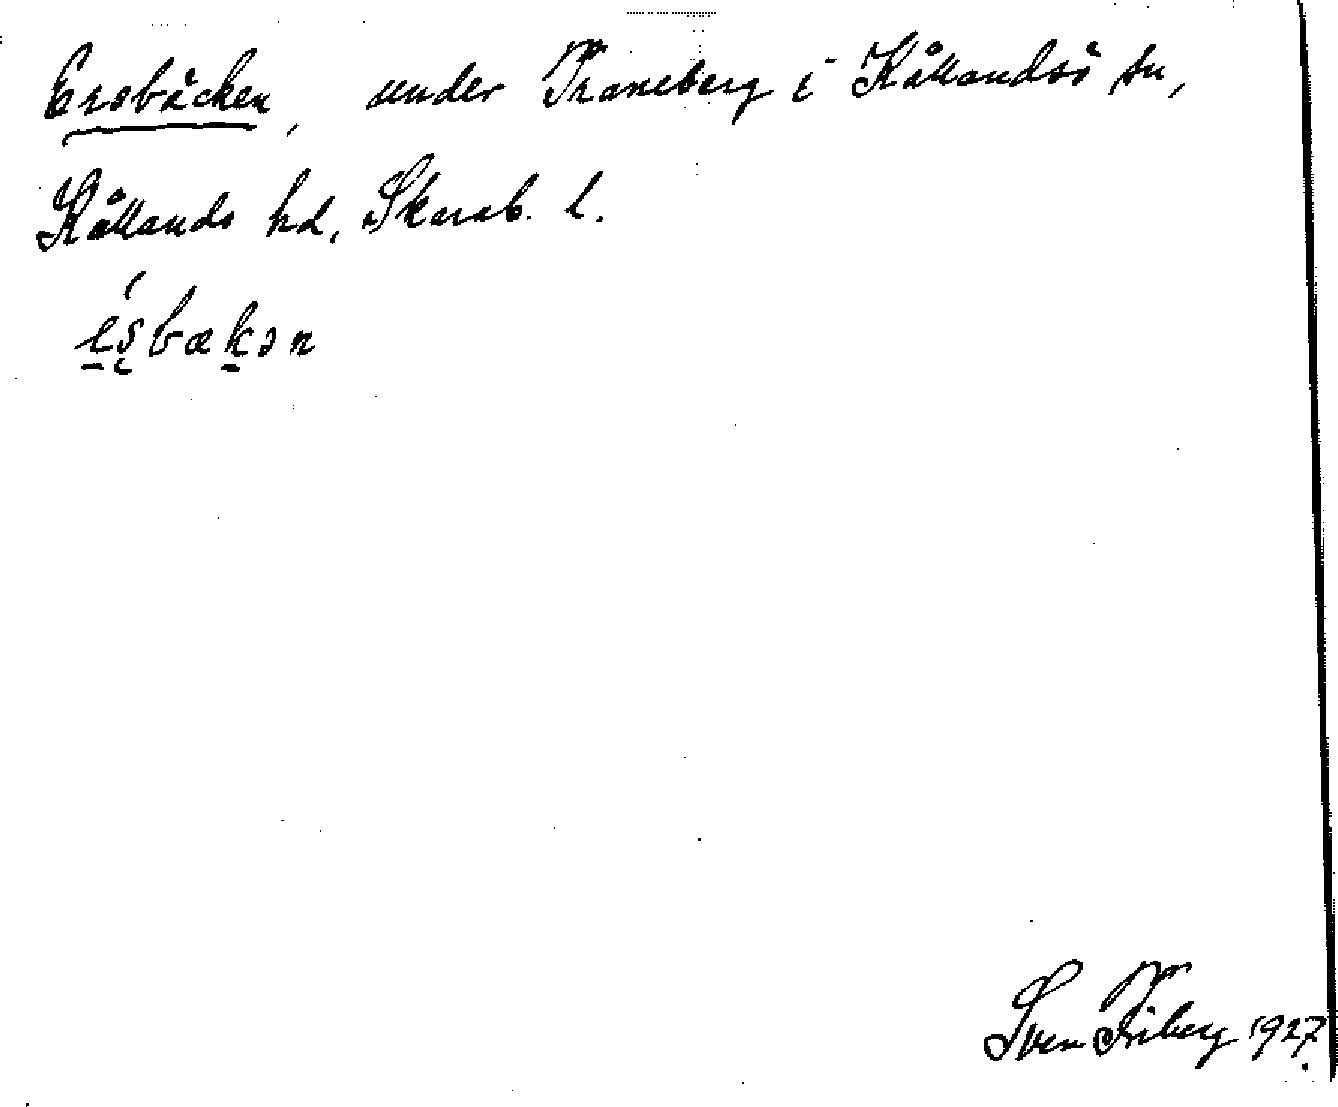 Ersbäcken, under Traneberg i Kållandsö sn,
Kållands hd, Skarab. l.
e̠ṣ́bæk̠ən
Sven Friberg 1927.